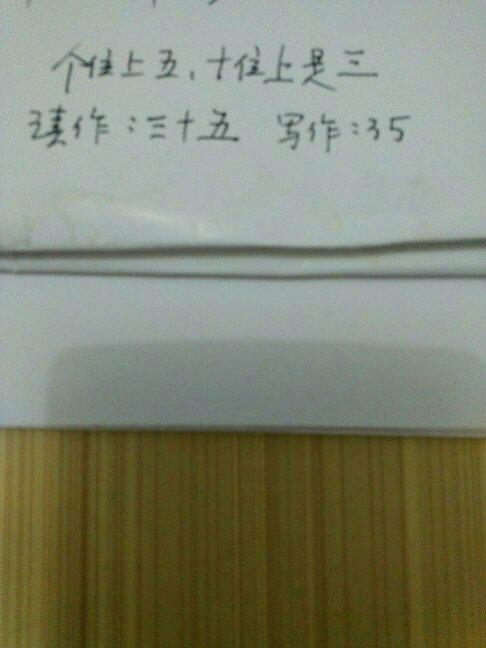 个位上五、十位上是三
读作：三十五 写作：35